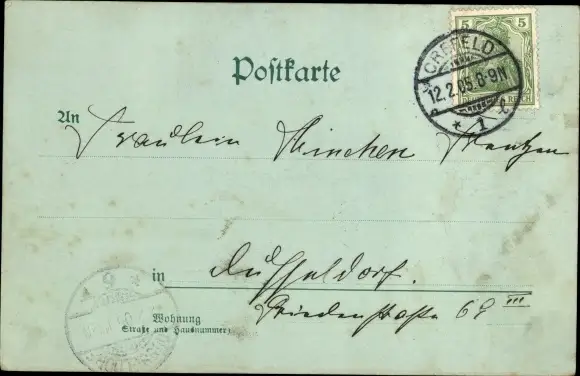 5 5
REICH
CREFELD
12.2.05.8-9N
* 1 t
Postkarte
An Fräulein Minchen
in Düsseldorf.
Wohnung Friedenstraße 69 III
Straße und Hausnummer